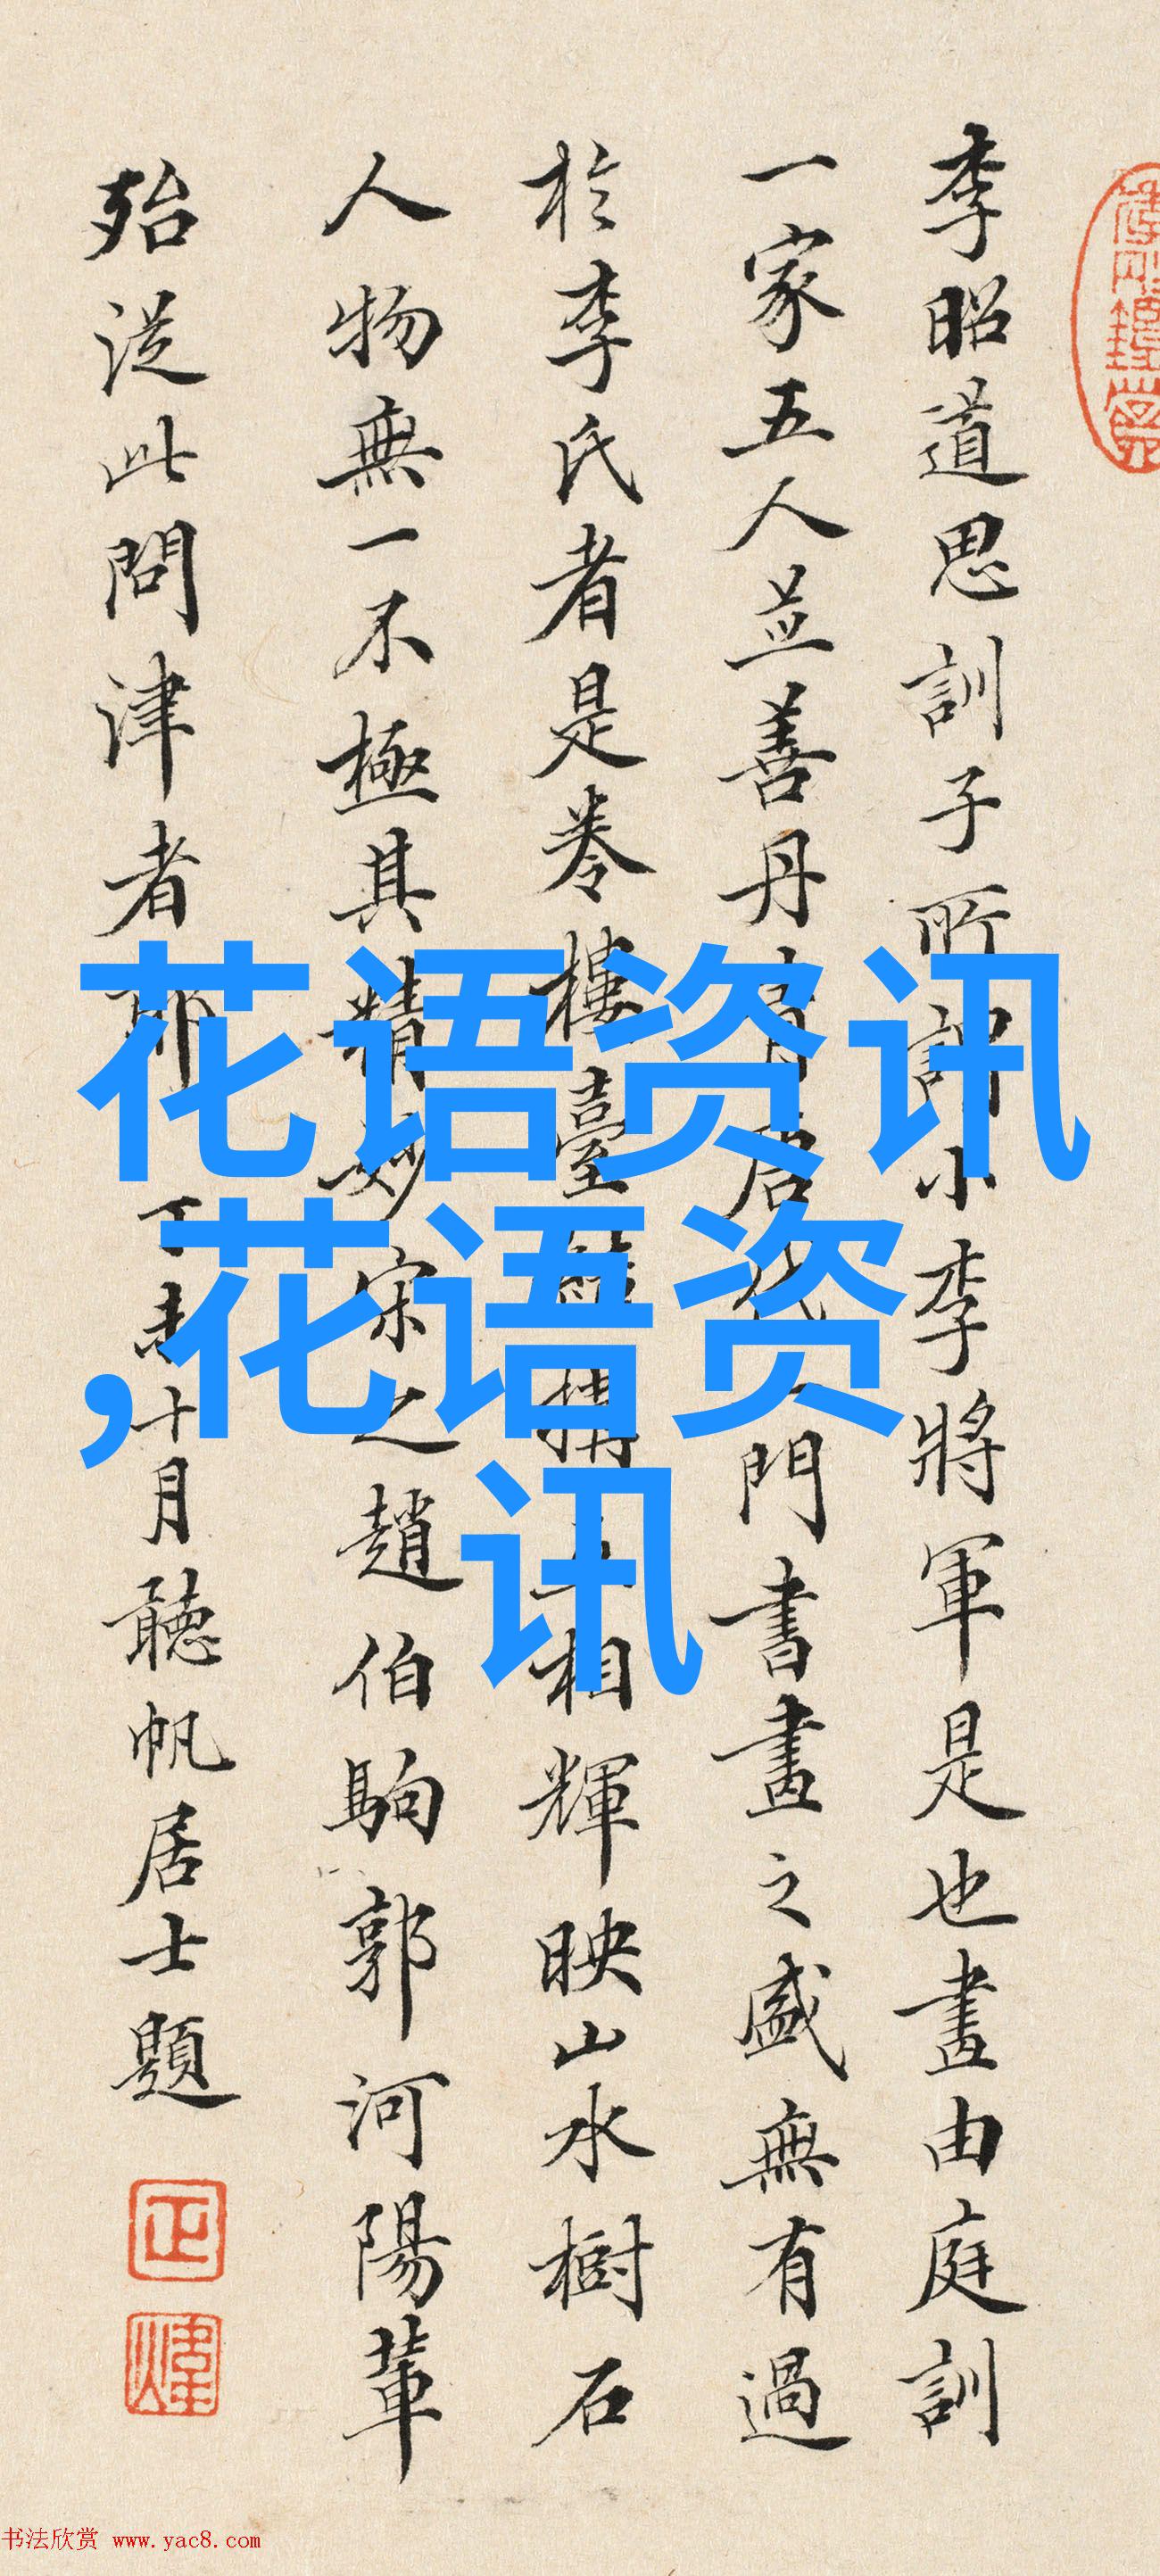 李昭道思訓子所謂小李將軍是也畫由庭訓
一家五人並善丹青有唐代門書畫之盛無有過
於李氏者是卷樓臺相輝映山水樹石
人物無一不極其精妙宋之趙伯駒郭河陽輩
殆從此問津者耶 丁未十月聽帆居士題
花语资讯
,花语资
讯
书法欣赏 www.yac8.com